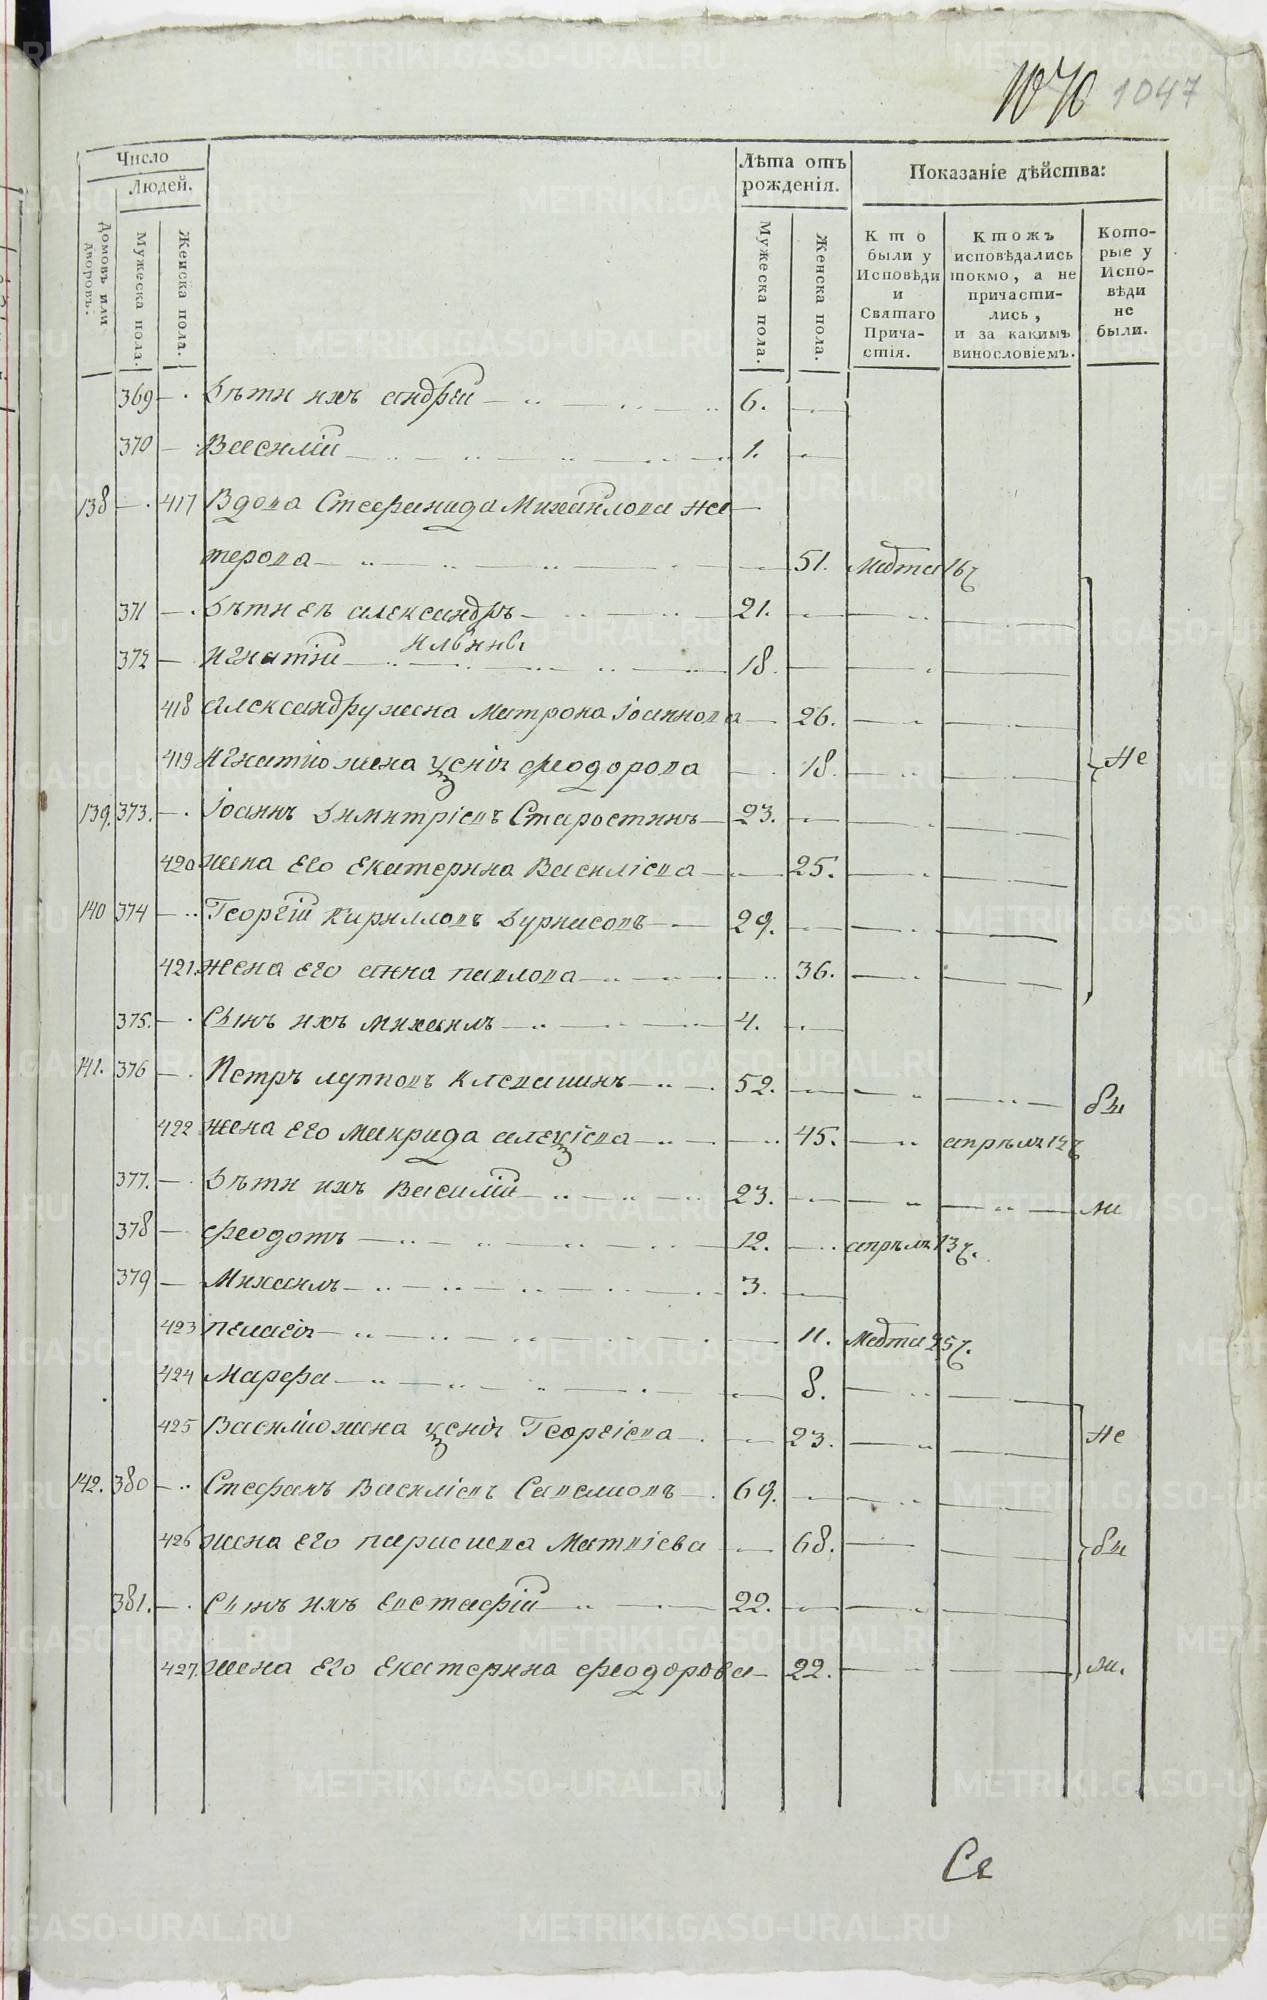 1070 1047
Число
Людей.
Домовъ или дворовъ.
Мужеска пола.
Женска пола.
Лѣта отъ рожденія.
Мужеска пола.
Женска пола.
Показаніе дѣйства:
Кто были у Исповѣди и Святаго Причастія.
Ктожъ исповѣдались токмо, а не причастились, и за какимъ винословіемъ.
Которые у Исповѣди не были.
369 Дѣти ихъ андрей 6.
370 Василій 1.
138 417 Вдова Стефанида Михайлова не
терова 51. 16
371 Дѣти еѣ александръ 21.
Ильины
372 Игнатій 18.
418 александру жена матрона Іоаннова 26.
419 Игнатию жена ксенія феодорова 18. Не
139. 373. Іоаннъ Димитріевъ Старостинъ 23.
420 жена его екатерина Василіева 25.
140 374 Георгій Кирилловъ Бурнасовъ 29.
421. жена его анна павлова 36.
375. Сынъ ихъ михаилъ 4.
141. 376 Петръ лупповъ клевашинъ 52. бы
422 жена его макрида алекѣева 45. апрѣля 12
377. Дѣти ихъ Василій 23. ли
378 феодотъ 12. апрѣля 13
379 Михаилъ 3.
423 пелагія 11. 25
424 Марфа 8.
425 Василию жена ксенія Георгіева 23. Не
142. 380 Стефанъ Василіевъ Савельовъ 69.
426 жена его параскева Матвіева 68. бы
381. Сынъ ихъ Евстафій 22.
427. жена его екатерина феодорова 22. ли.
Се
METRIKI.GASO-URAL.RU